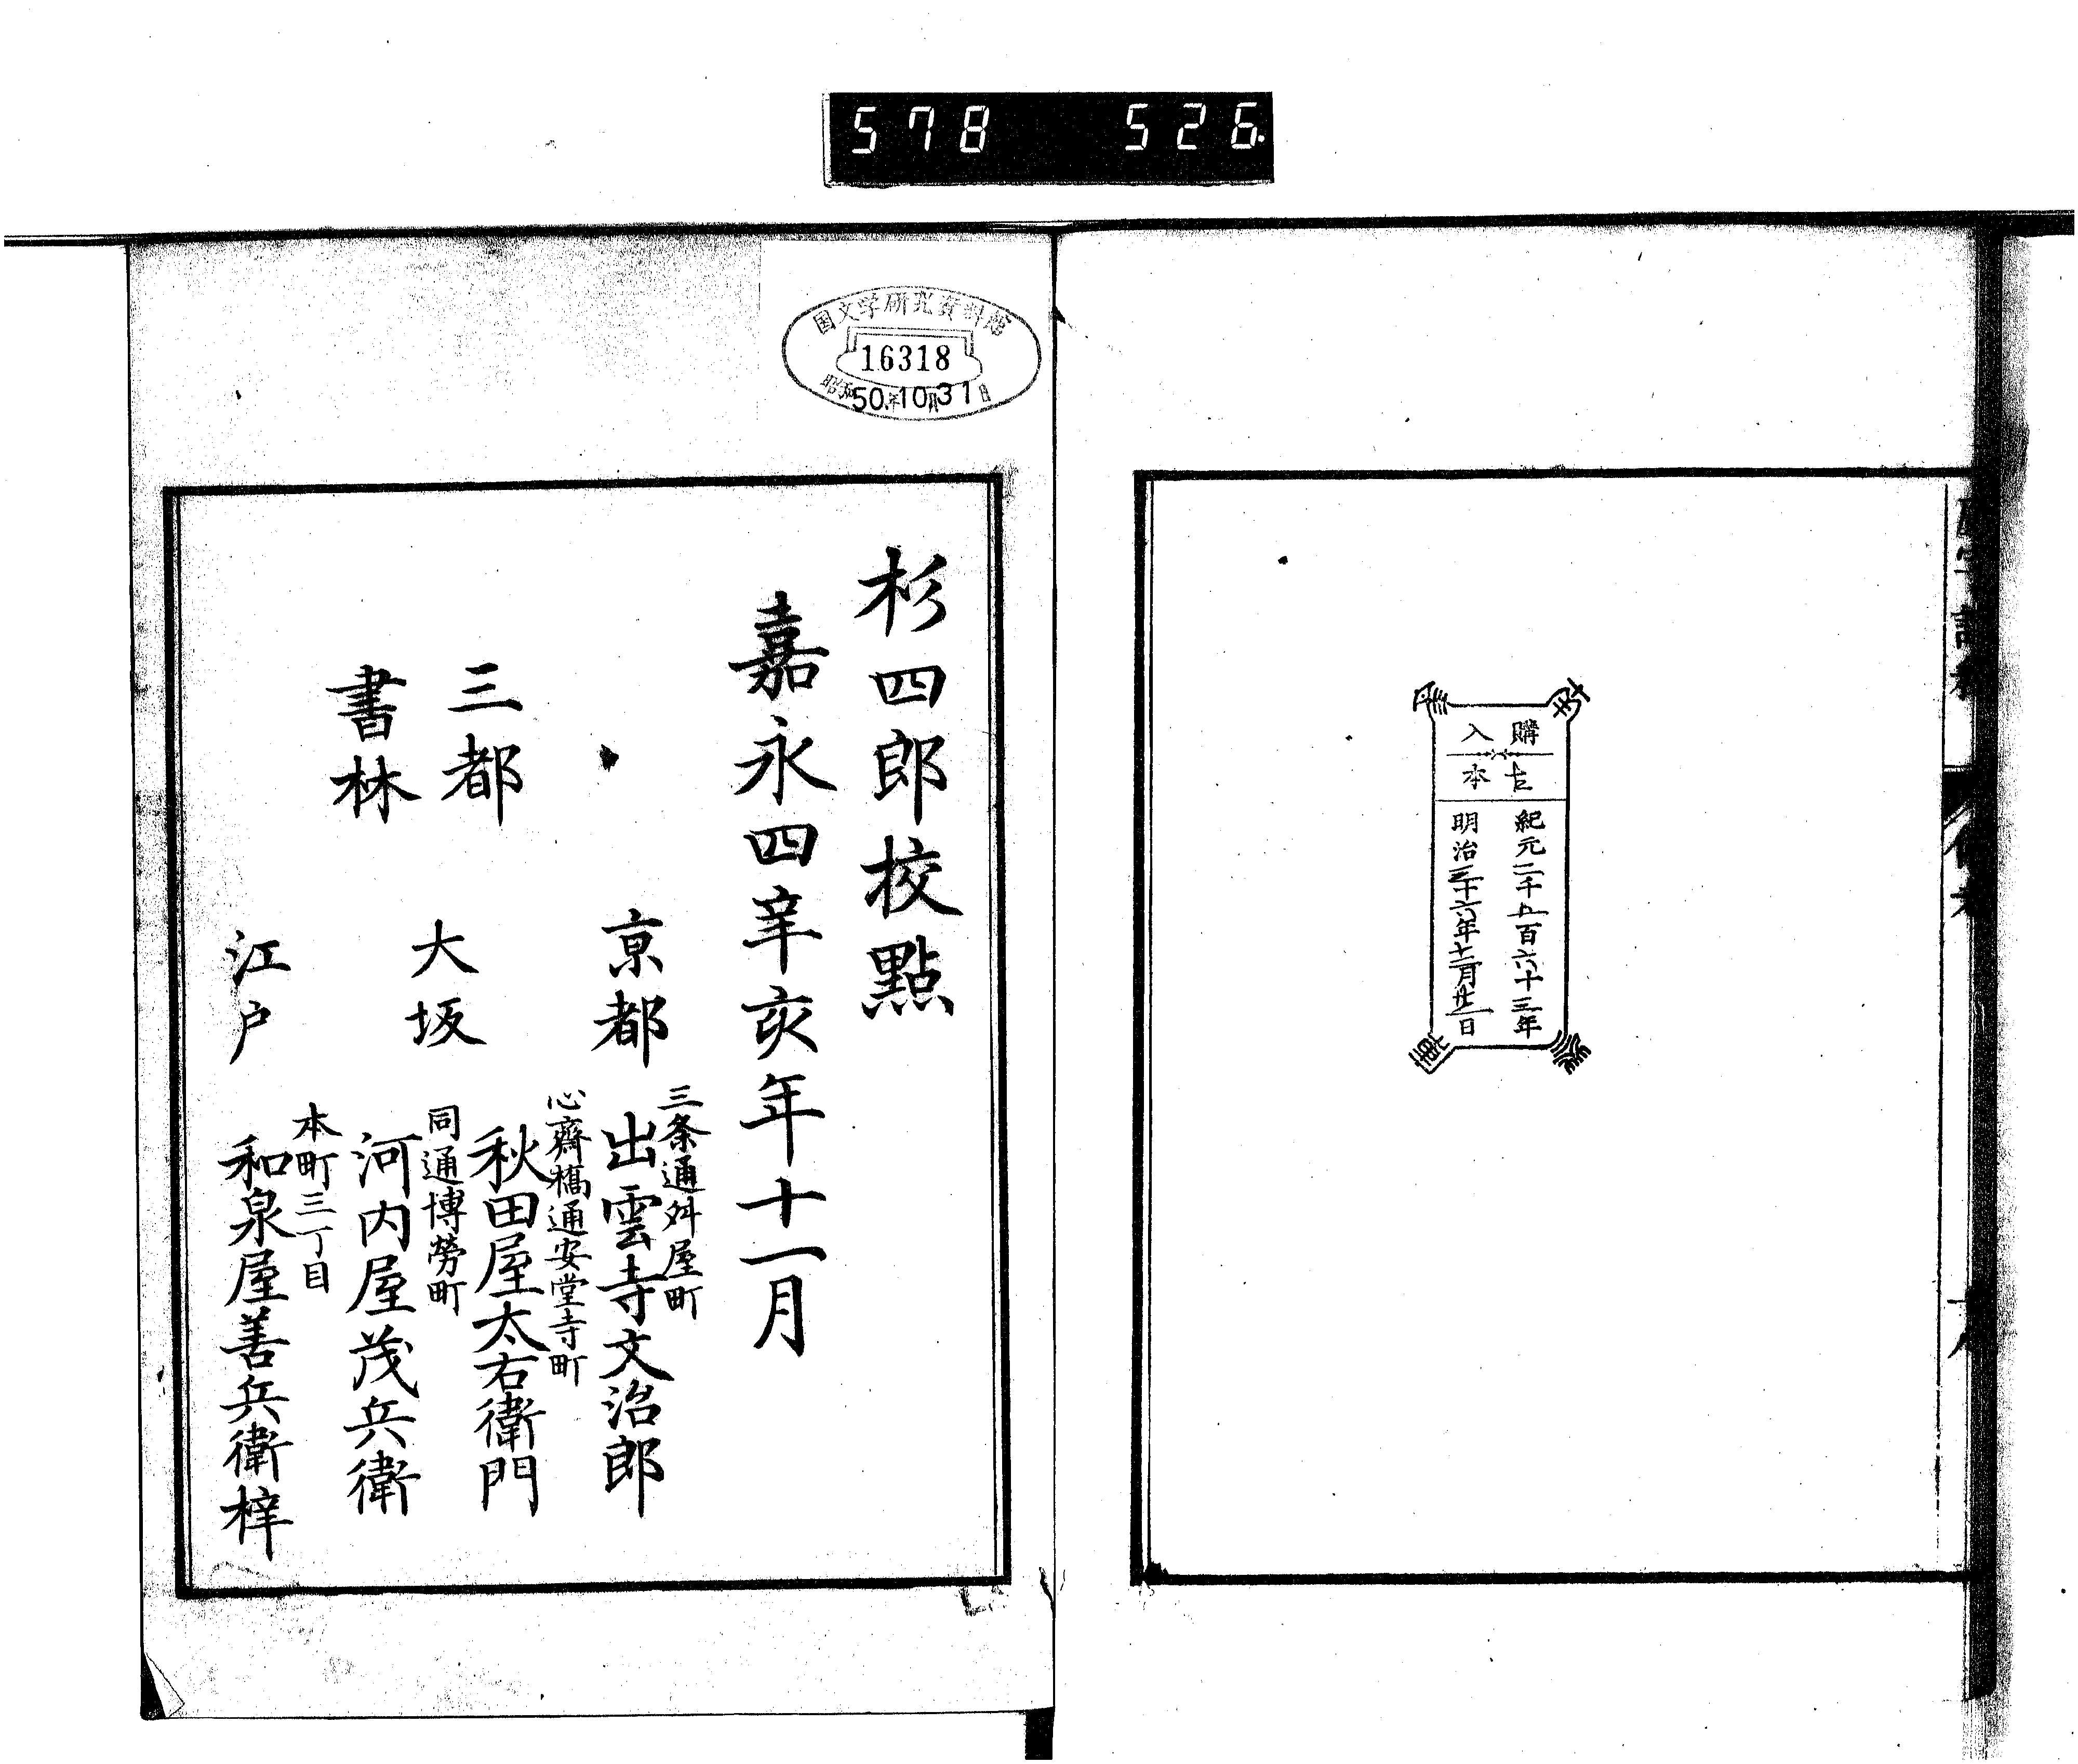 578 526.
購入
古本
紀元二千五百六十三年
明治三十六年十二月廿一日
国文学研究資料館
16318
昭和50年10月31日
杉四郎校點
嘉永四辛亥年十一月
三都
書林
京都
三条通舛屋町
出雲寺文治郎
大坂
心齋橋通安堂寺町
秋田屋太右衛門
同通博労町
河内屋茂兵衛
江戸
本町三丁目
和泉屋善兵衛梓